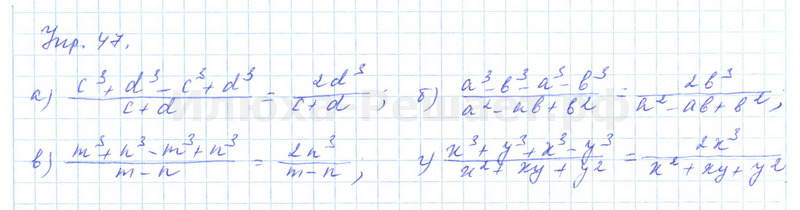 Упр. 47.
а) (c³ + d³ - c³ + d³)/(c + d) = 2d³/(c + d); б) (a³ - b³ - a³ - b³)/(a² - ab + b²) = 2b³/(a² - ab + b²);
в) (m³ + n³ - m³ + n³)/(m - n) = 2n³/(m - n); г) (x³ + y³ + x³ - y³)/(x² + xy + y²) = 2x³/(x² + xy + y²)